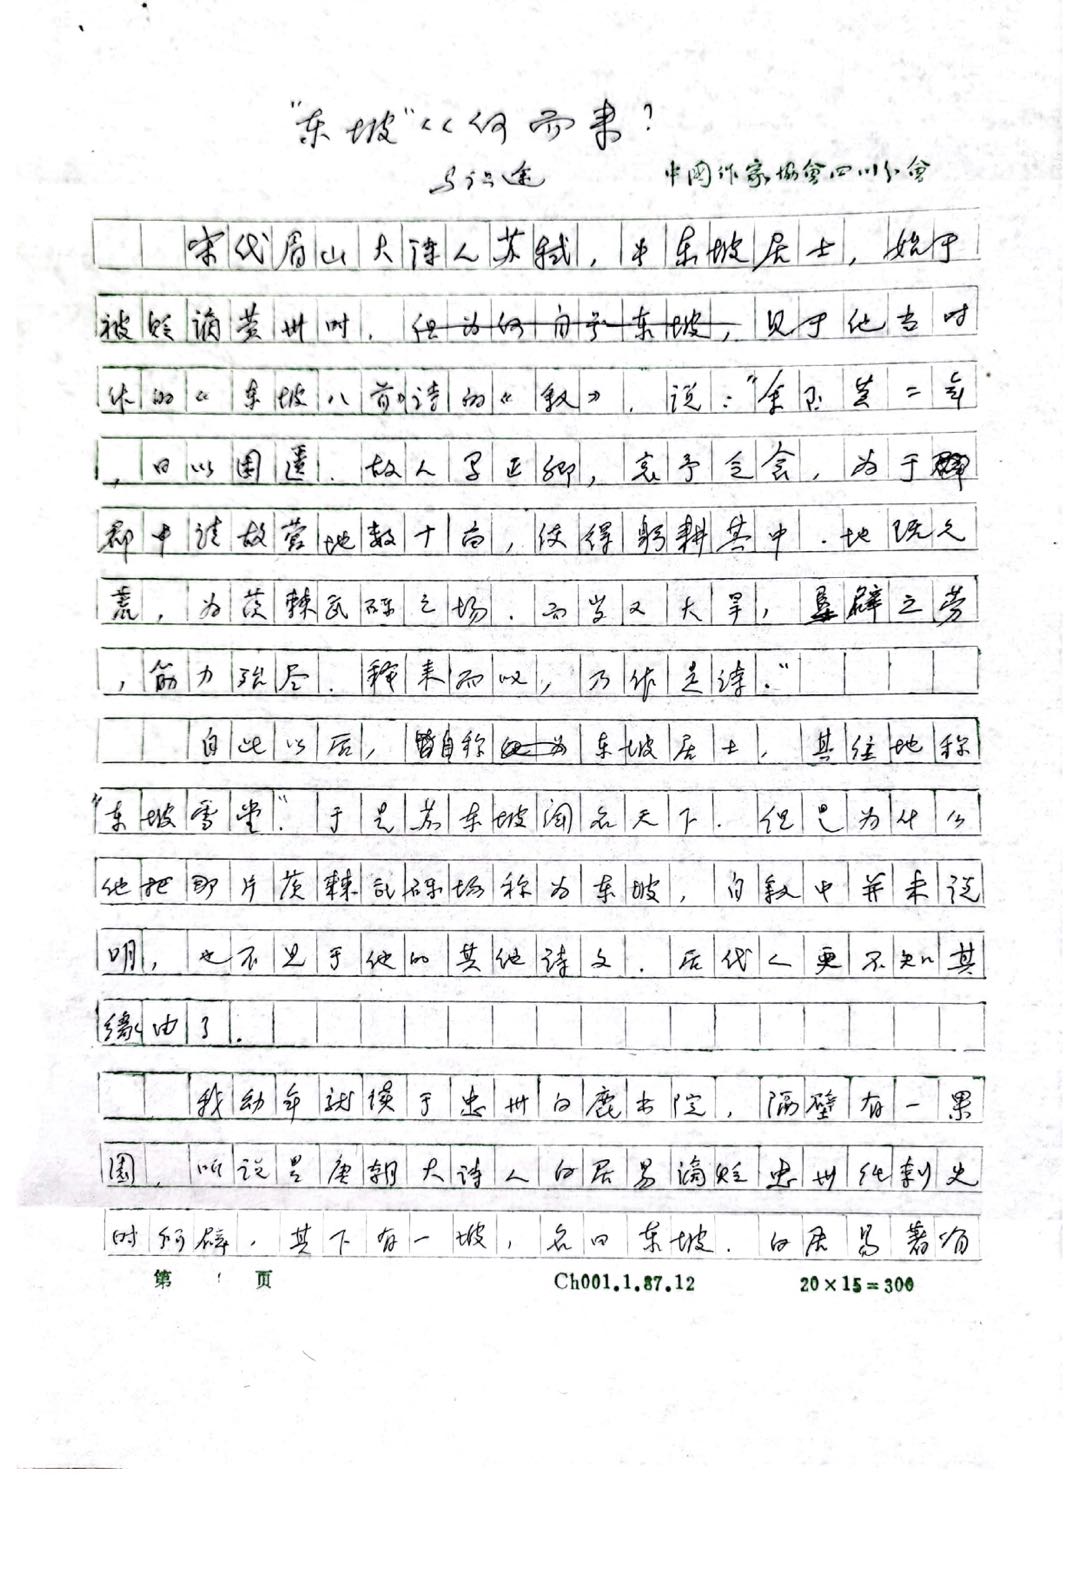 "东坡"从何而来?
马识途 中国作家协会四川分会
宋代眉山大诗人苏轼,中东坡居士,始于
被贬谪黄州时.但为何自号东坡,见于他当时
作的《东坡八首》诗的《叙》.说:"余至黄二年
,日以困匮.故人马正卿,哀予乏食,为于
郡中请故营地数十亩,使得躬耕其中.地既久
荒,为茨棘瓦砾之场.而岁又大旱,垦辟之劳
,筋力殆尽.释耒而叹,乃作是诗."
自此以后,自称东坡居士,其住地称
"东坡雪堂".于是苏东坡闻名天下.但是为什么
他把那片茨棘瓦砾场称为东坡,自叙中并未说
明,也不见于他的其他诗文.后代人更不知其
缘由了.
我幼年就读于忠州白鹿书院,隔壁有一果
园,听说是唐朝大诗人白居易谪贬忠州任刺史
时所辟,其下有一坡,名曰东坡.白居易著有
第1页 Ch001.1.87.12 20×15=300